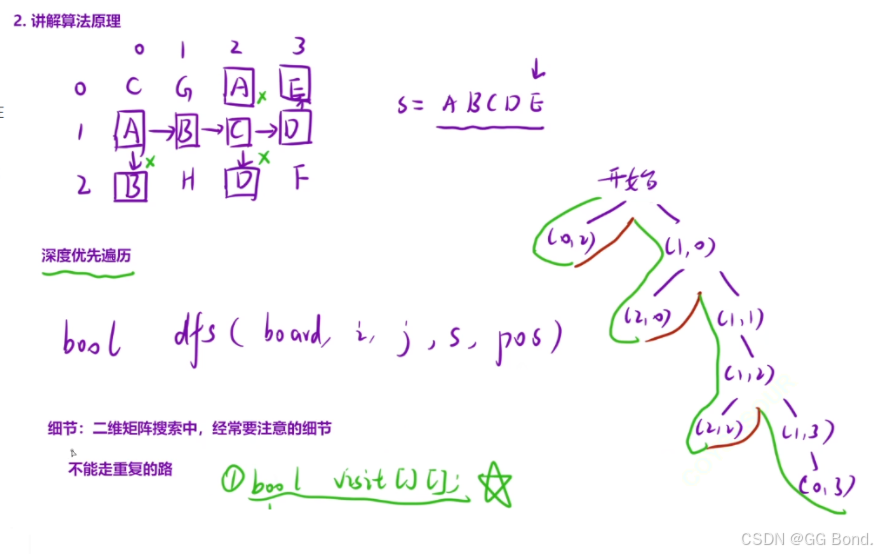 2. 讲解算法原理
0 1 2 3
0 C G A E
1 A B C D
2 B H D F
S = A B C D E
开始
(0,2) (1,0)
(2,0) (1,1)
(1,2)
(2,2) (1,3)
(0,3)
深度优先遍历
bool dfs( board, i, j, s, pos)
细节：二维矩阵搜索中，经常要注意的细节
不能走重复的路
① bool visit[][];
CSDN @GG Bond.